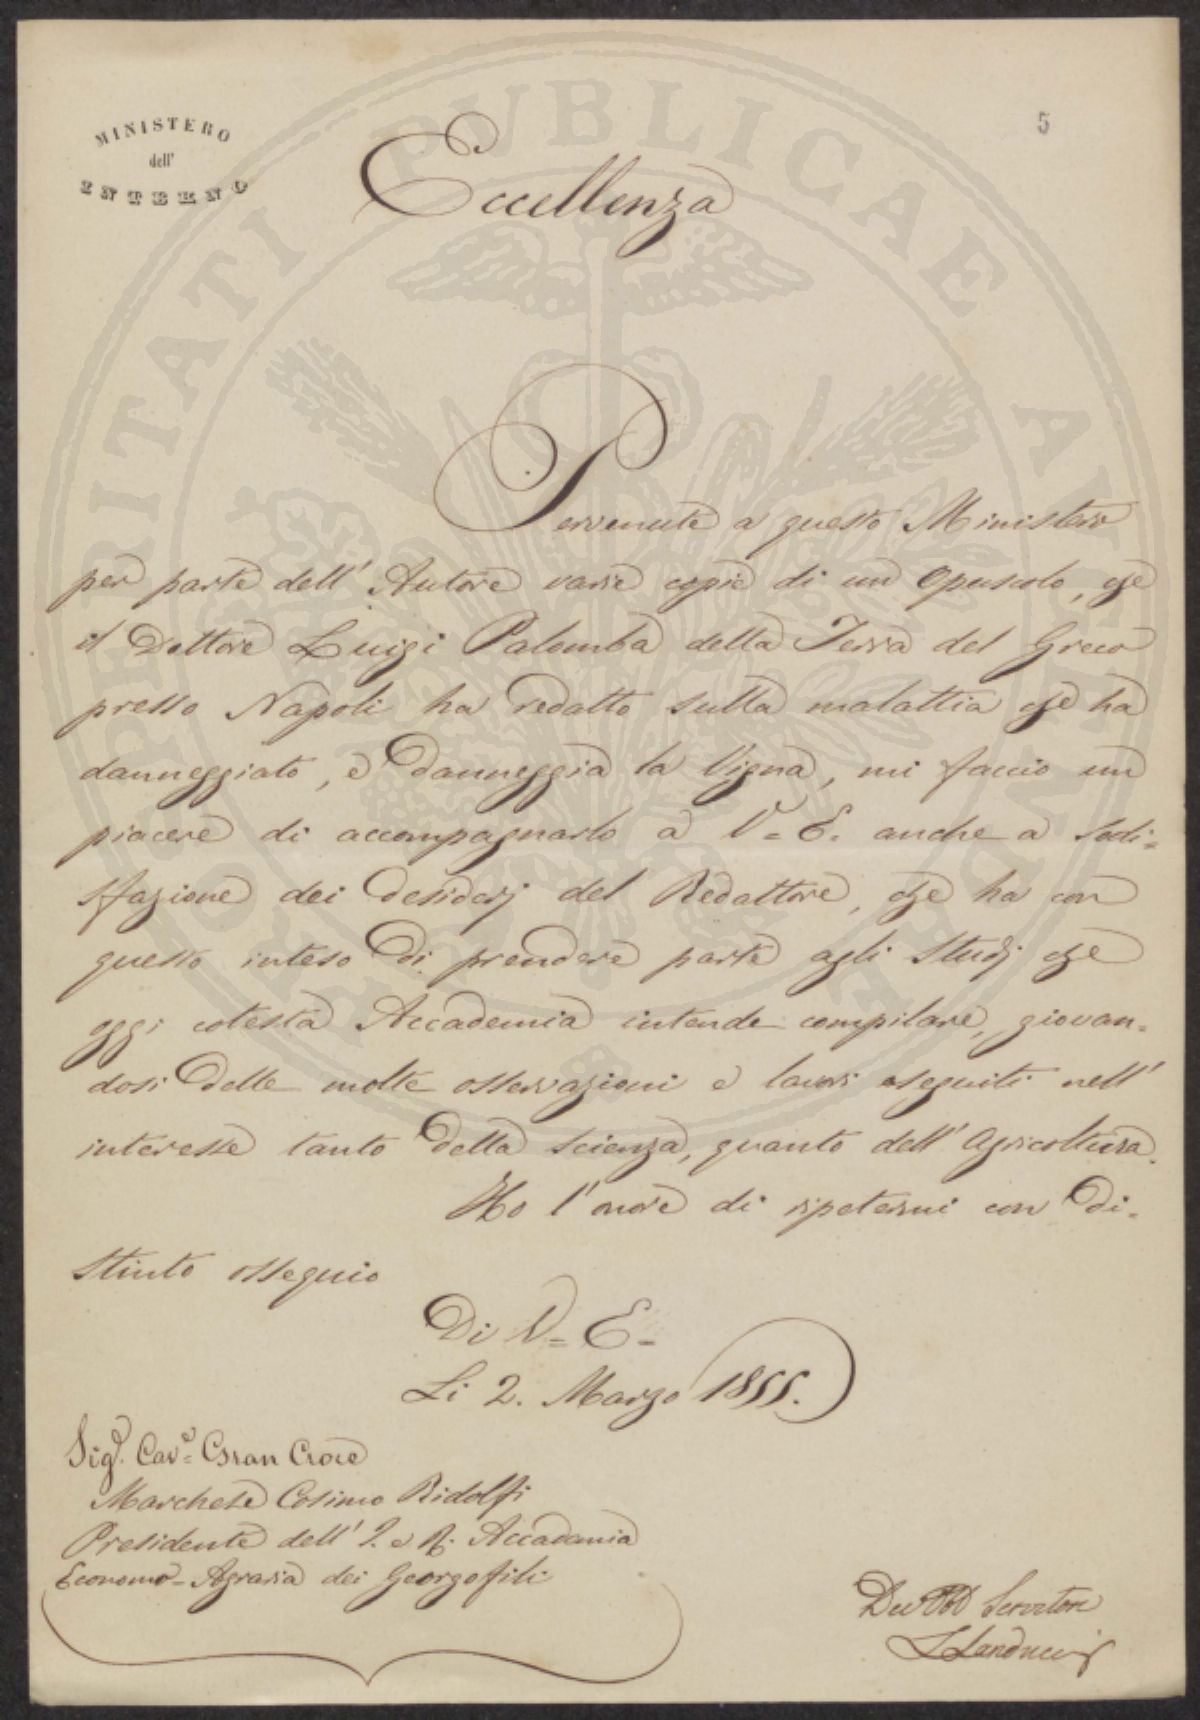 5
MINISTERO
dell'
INTERNO
Eccellenza
Pervenute a questo Ministero
per parte dell' Autore varie copie di un Opuscolo, che
il Dottore Luigi Palomba della Terra del Greco
presso Napoli ha redatto sulla malattia che ha
danneggiato, e danneggia la Vigna, mi faccio un
piacere di accompagnarlo a V. E. anche a sodi=
sfazione dei desiderj del Redattore, che ha con
questo inteso di prendere parte agli Studj che
oggi cotesta Accademia intende compilare, giovan=
dosi delle molte osservazioni e lavori eseguiti nell'
interesse tanto della Scienza, quanto dell' Agricoltura.
Ho l' onore di ripetermi con di=
stinto ossequio
Di V= E=
Li 2. Marzo 1855.
Sig.e Cav.e Gran Croce
Marchese Cosimo Ridolfi
Presidente dell' I. e R. Accademia
Economo=Agraria dei Georgofili
Dev Obb Servitore
L Landucci
PROSPERITATI PUBLICAE AUGENDAE